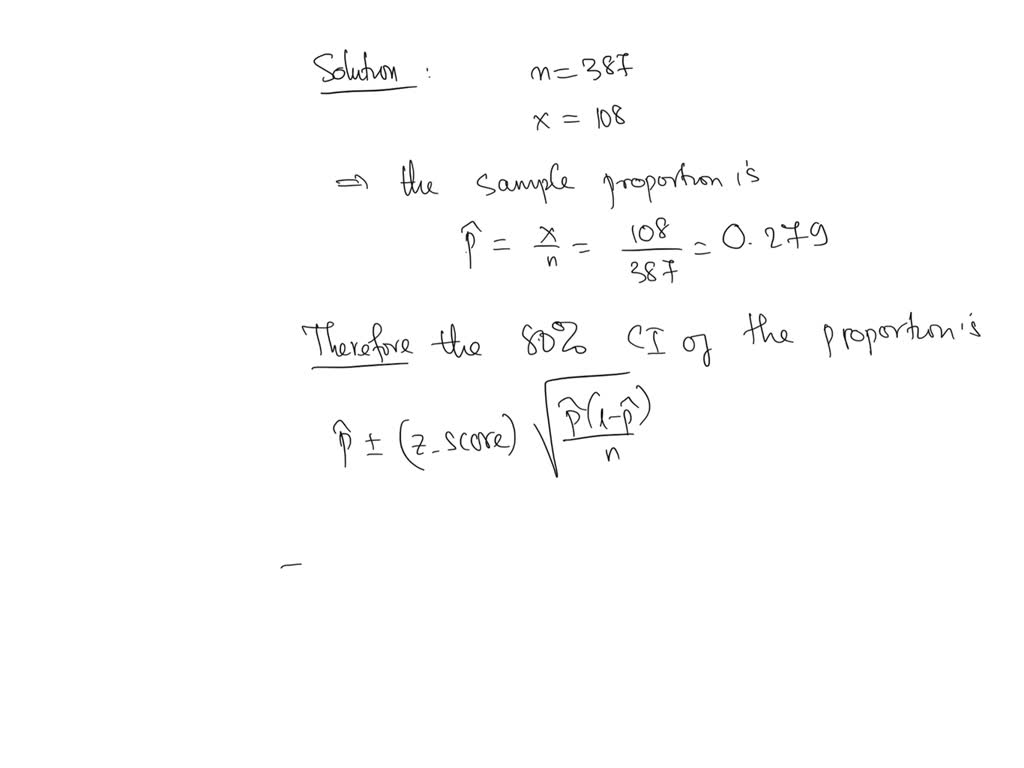 Solution : n = 387
x = 108
⇒ the sample proportion is
p̂ = x/n = 108/387 = 0.279
Therefore the 80% CI of the proportion is
p̂ ± (z_score) √(p̂(1-p̂)/n)
–